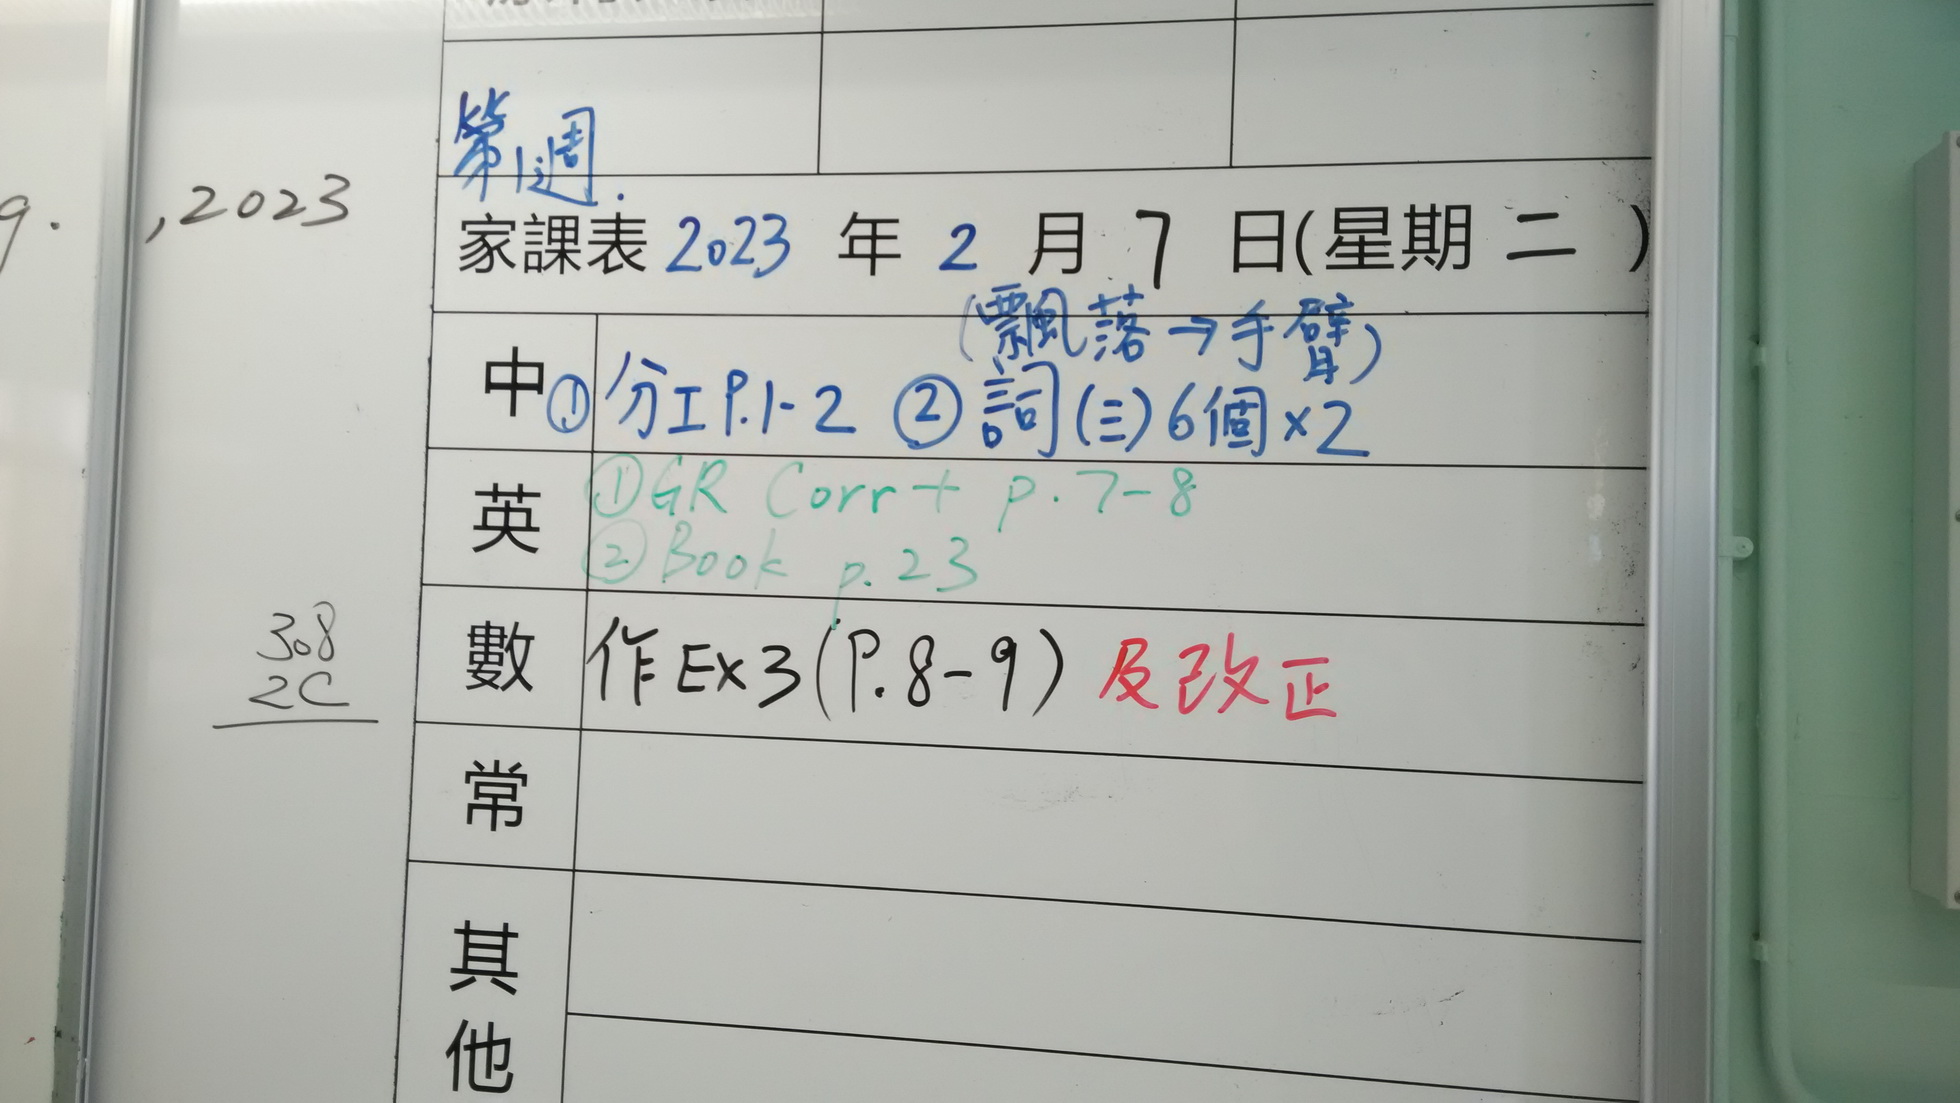 第1週.
9. , 2023
家課表 2023 年 2 月 7 日(星期 二 )
(飄落→手臂)
中 ① 分工P.1-2 ② 詞(三)6個×2
英 ① GR Corr + p.7-8
② Book p.23
數 作Ex3(P.8-9) 及改正
308
2C
常
其
他